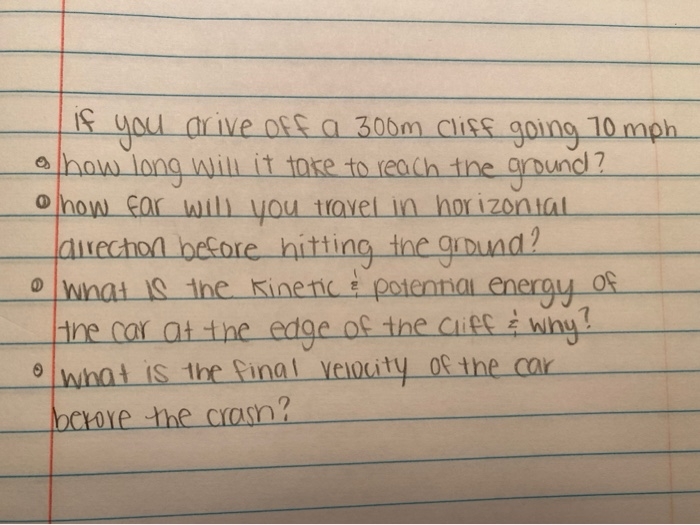 if you drive off a 300m cliff going 70 mph
how long will it take to reach the ground?
how far will you travel in horizontal
direction before hitting the ground?
what is the kinetic & potential energy of
the car at the edge of the cliff & why?
what is the final velocity of the car
before the crash?